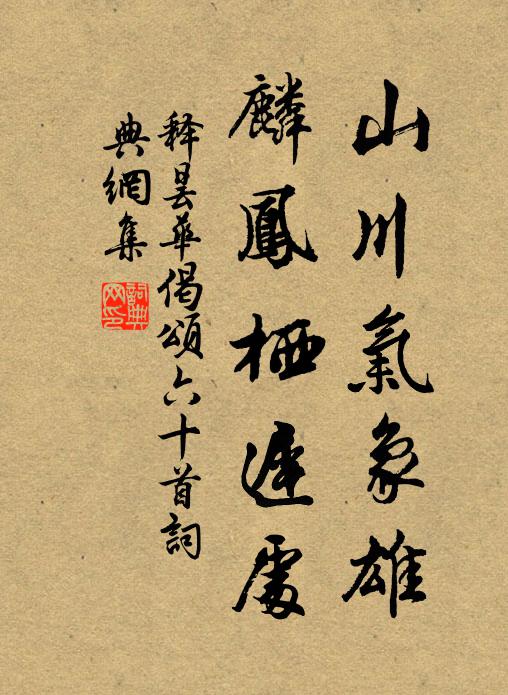 山川氣象雄
麟鳳栖遲處
釋曇華偈頌六十首詞
典網集
詞典网印